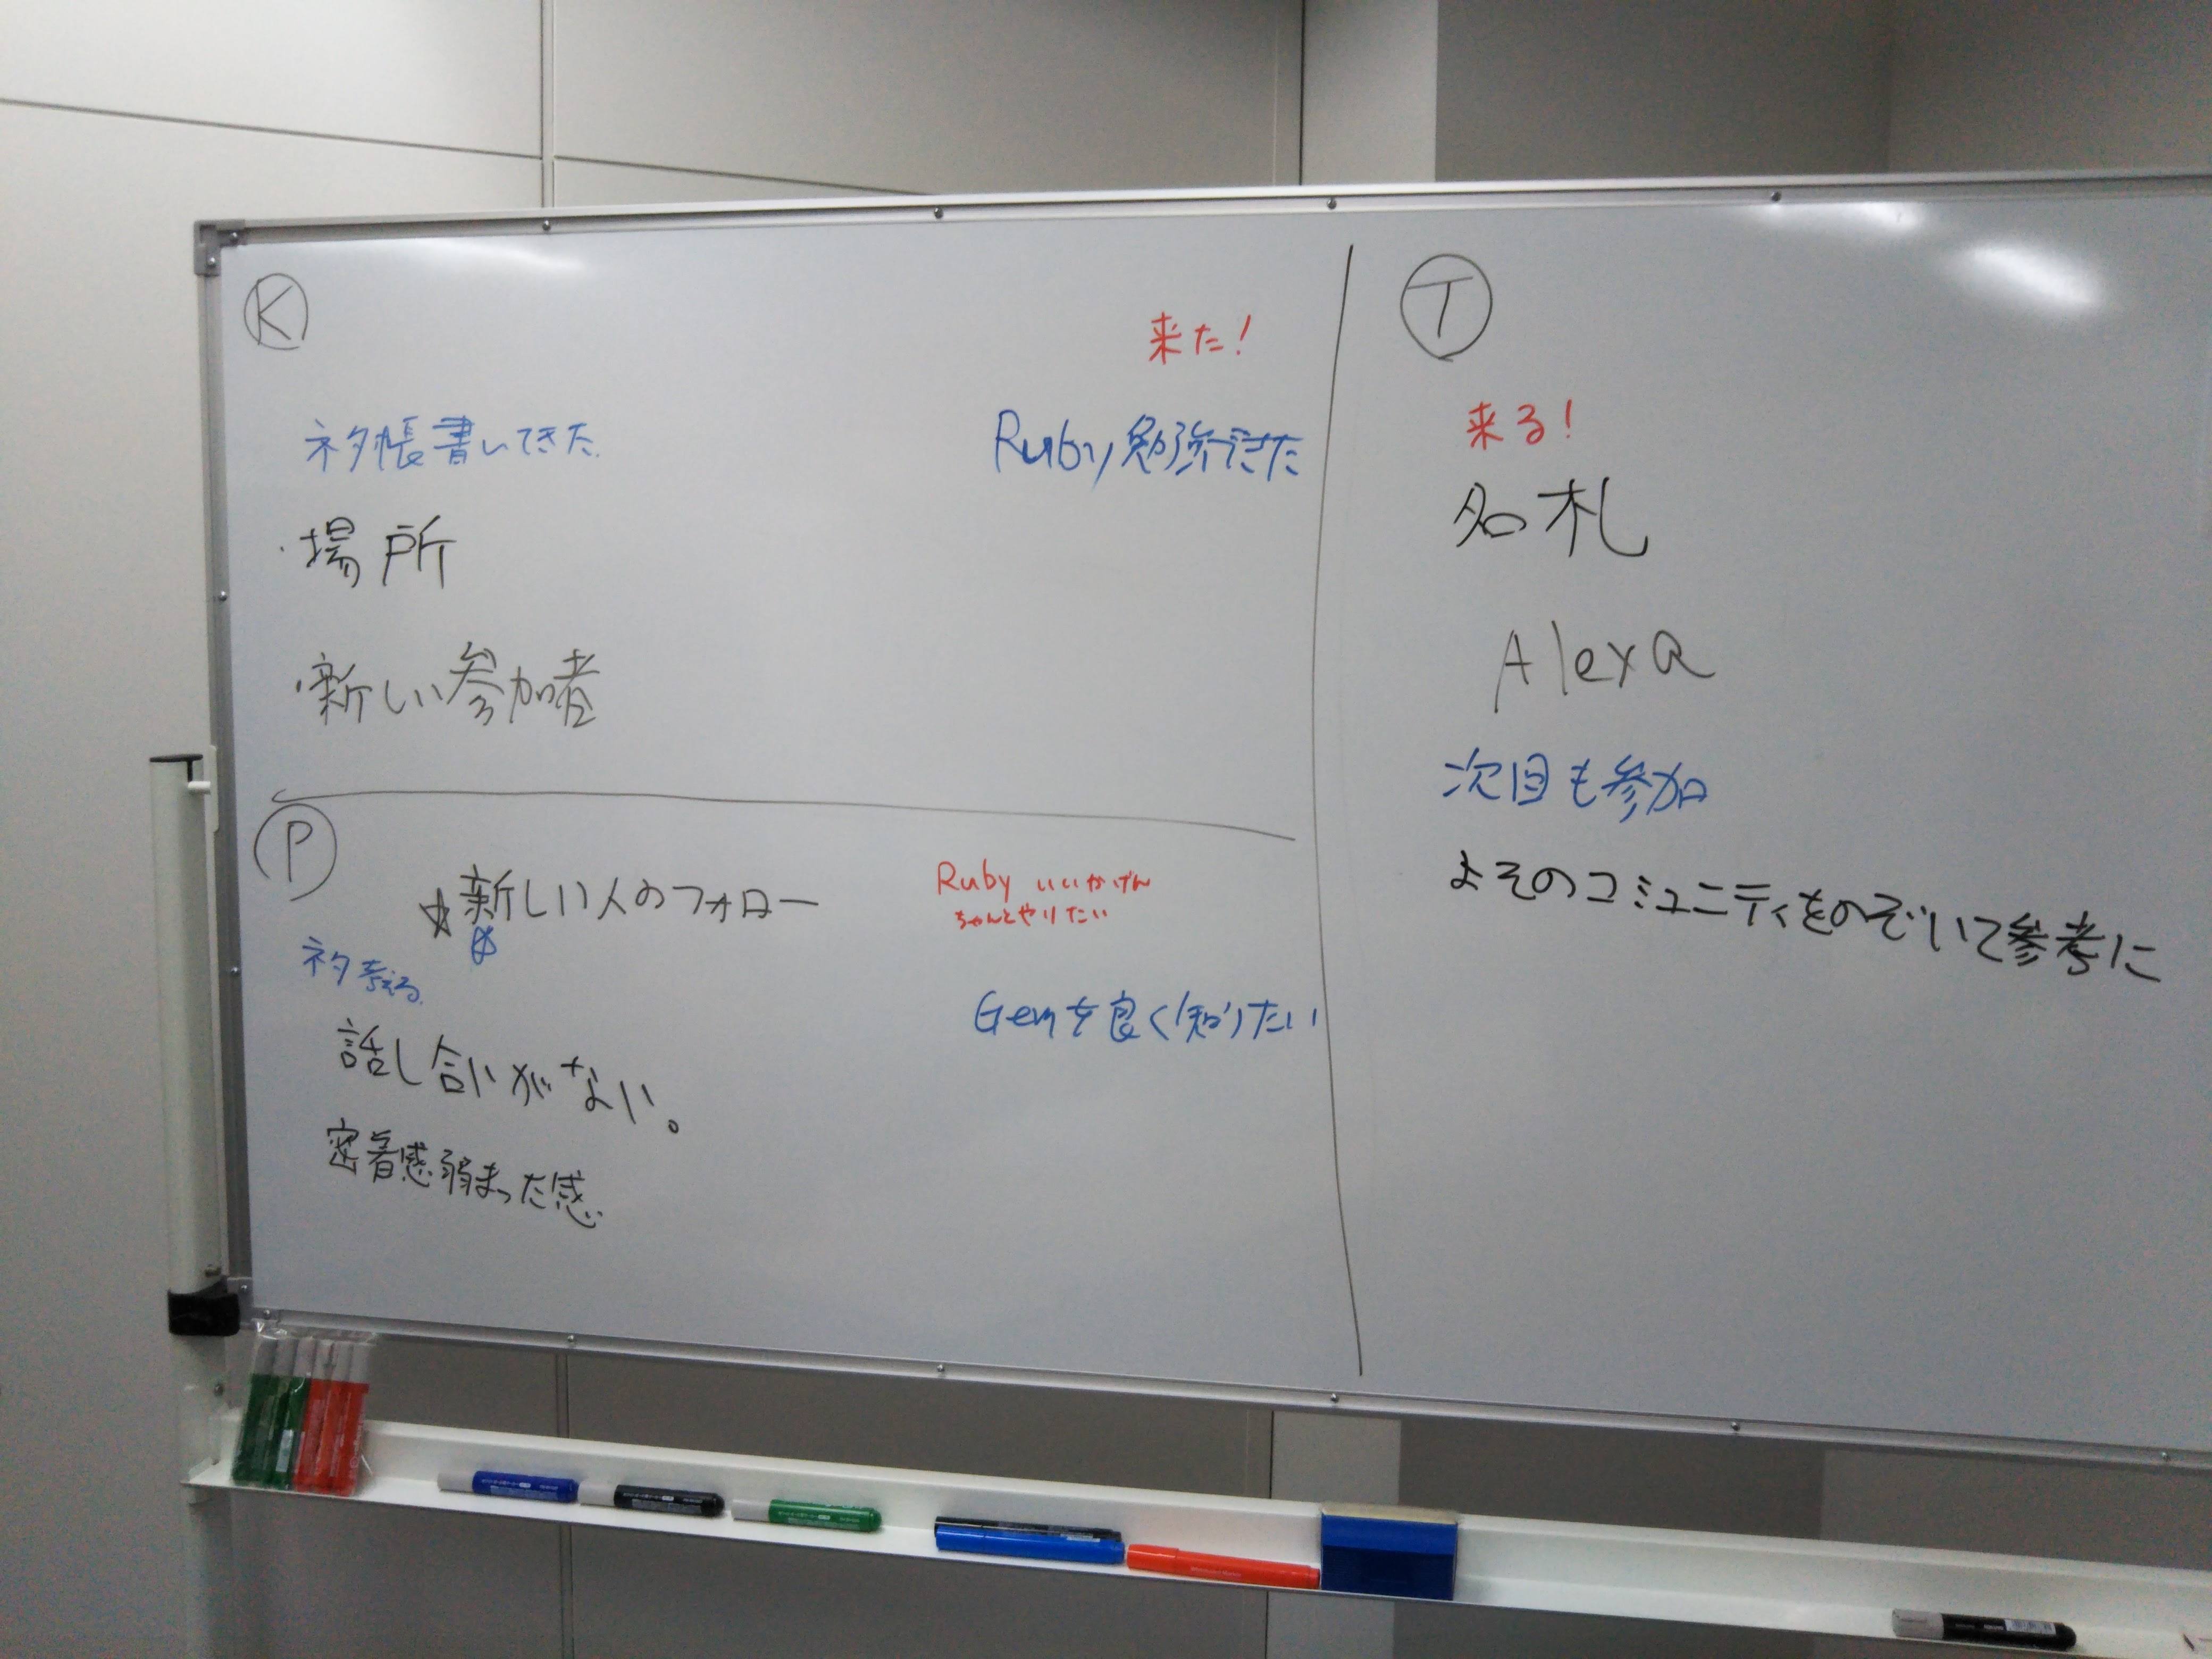 K
来た!
ネタ帳書いてきた.
Ruby勉強できた
・場所
・新しい参加者
P
☆新しい人のフォロー
Ruby いいかげん
ちゃんとやりたい
ネタ考える.
Gemを良く知りたい
話し合いがない。
密着感弱まった感
T
来る!
名札
Alexa
次回も参加
よそのコミュニティをのぞいて参考に